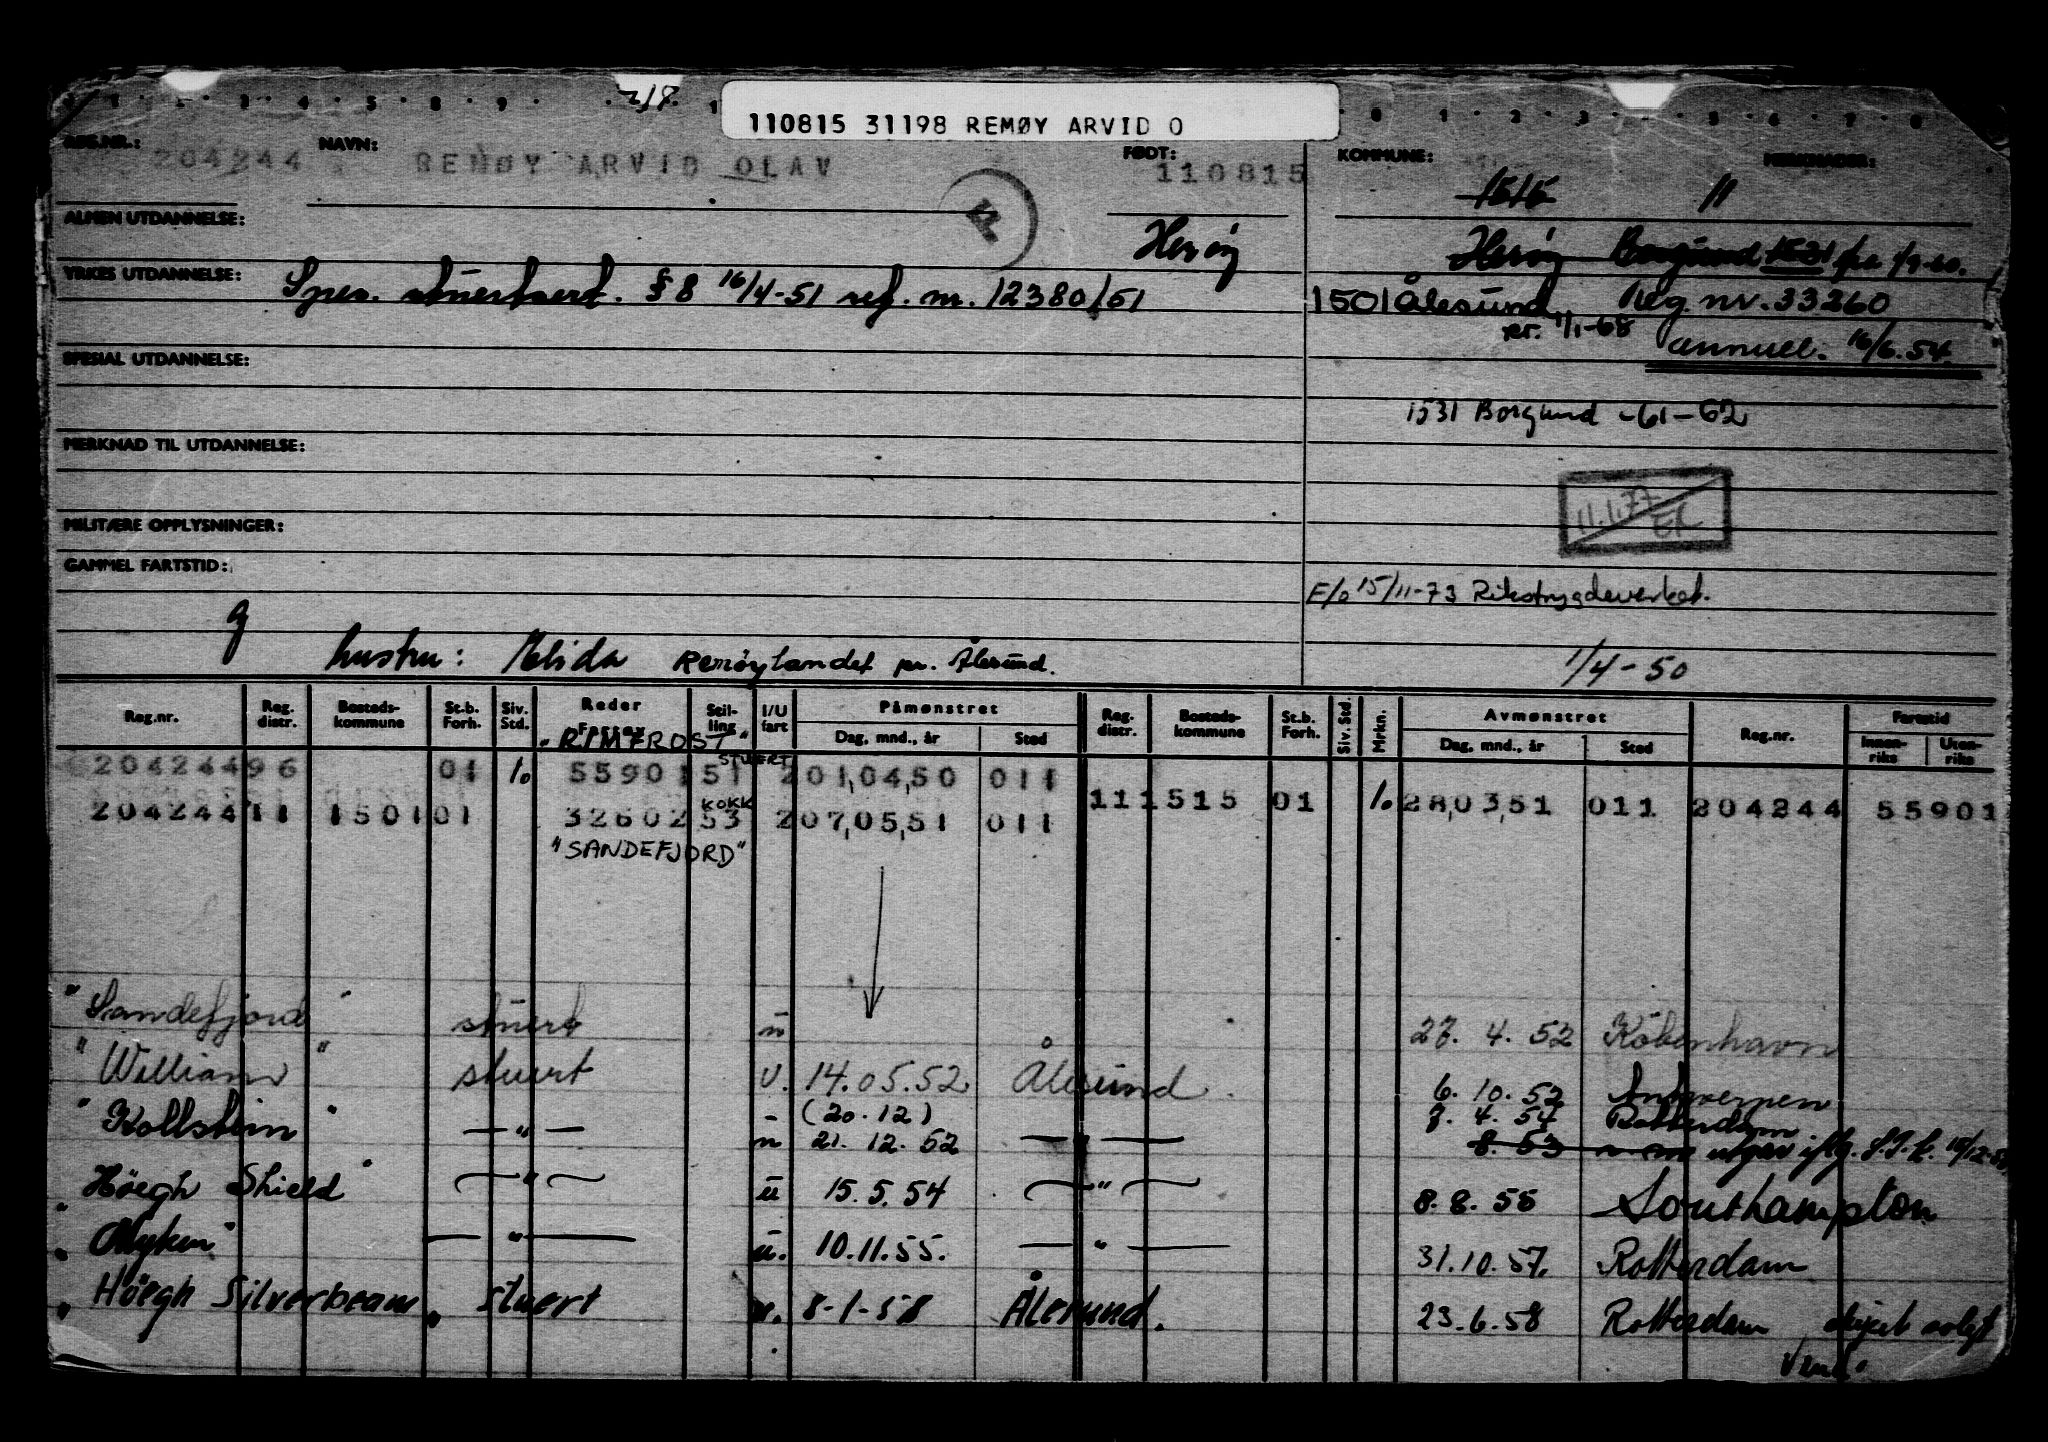 110815 31198 REMØY ARVID O
REG.NR.: 204244 NAVN: REMØY ARVID OLAV FØDT: 110815 KOMMUNE: MERKNADER:
1515 11
ALMEN UTDANNELSE: Herøy Herøy Borgund 1531 fra 1/9-60.
YRKES UTDANNELSE: Spes. stuertsert. § 8 16/4-51 ref. nr. 12380/51 1501 Ålesund Reg. nr. 33260
pr. 1/1-68 annull. 16/6.54
SPESIAL UTDANNELSE:
1531 Borgund -61-62
MERKNAD TIL UTDANNELSE:
11.1.77
MILITÆRE OPPLYSNINGER:
GAMMEL FARTSTID:
E/o 15/11-73 Rikstrygdeverket.
g
hustru: Elida Remøylandet pr. Ålesund. 1/4-50
Reg.nr. Reg. distr. Bosteds-kommune St.b. Forh. Siv. Std. Reder Fartøy Stil-ling I/U fart Påmønstret Dag, mnd., år Sted Reg. distr. Bosteds-kommune St.b. Forh. Siv. Std. Mrkn. Avmønstret Dag, mnd., år Sted Reg.nr. Fartstid Innen-riks Uten-riks
"RIMFROST" STUERT
204244 96 01 1. 55901 51 2 01,04,50 011
111515 01 1. 28,03,51 011 204244 55901
KOKK
204244 11 1501 01 32602 53 2 07,05,51 011
"SANDEFJORD"
"Sandefjord" stuert u 27. 4. 52 København
"William" stuert U. 14.05.52 Ålesund 6. 10. 52 Antwerpen
(20.12) 7. 4. 54 Rotterdam
"Kollstein" — " — u 21. 12. 52 — " — 8. 53 utgår iflg.
"Höegh Shield" — " — u 15. 5. 54 — " — 8. 8. 55 Southampton
"Nyken" — " — u. 10.11.55. — " — 31.10.57. Rotterdam
"Höegh Silverbeam" stuert u. 8-1-58 Ålesund. 23.6.58 Rotterdam skipet solgt
Vend.